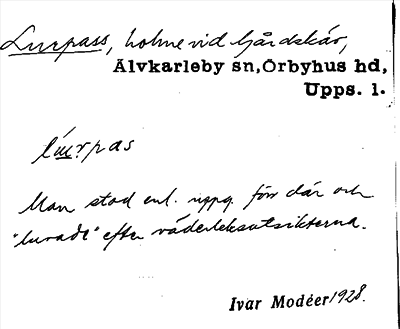 Lurpass, holme vid Gårdskär,
Älvkarleby sn, Örbyhus hd,
Upps. l.
lu̅rpas
Man stod enl. uppg. förr där och
"lurade" efter väderleksutsikterna.
Ivar Modéer 1928.